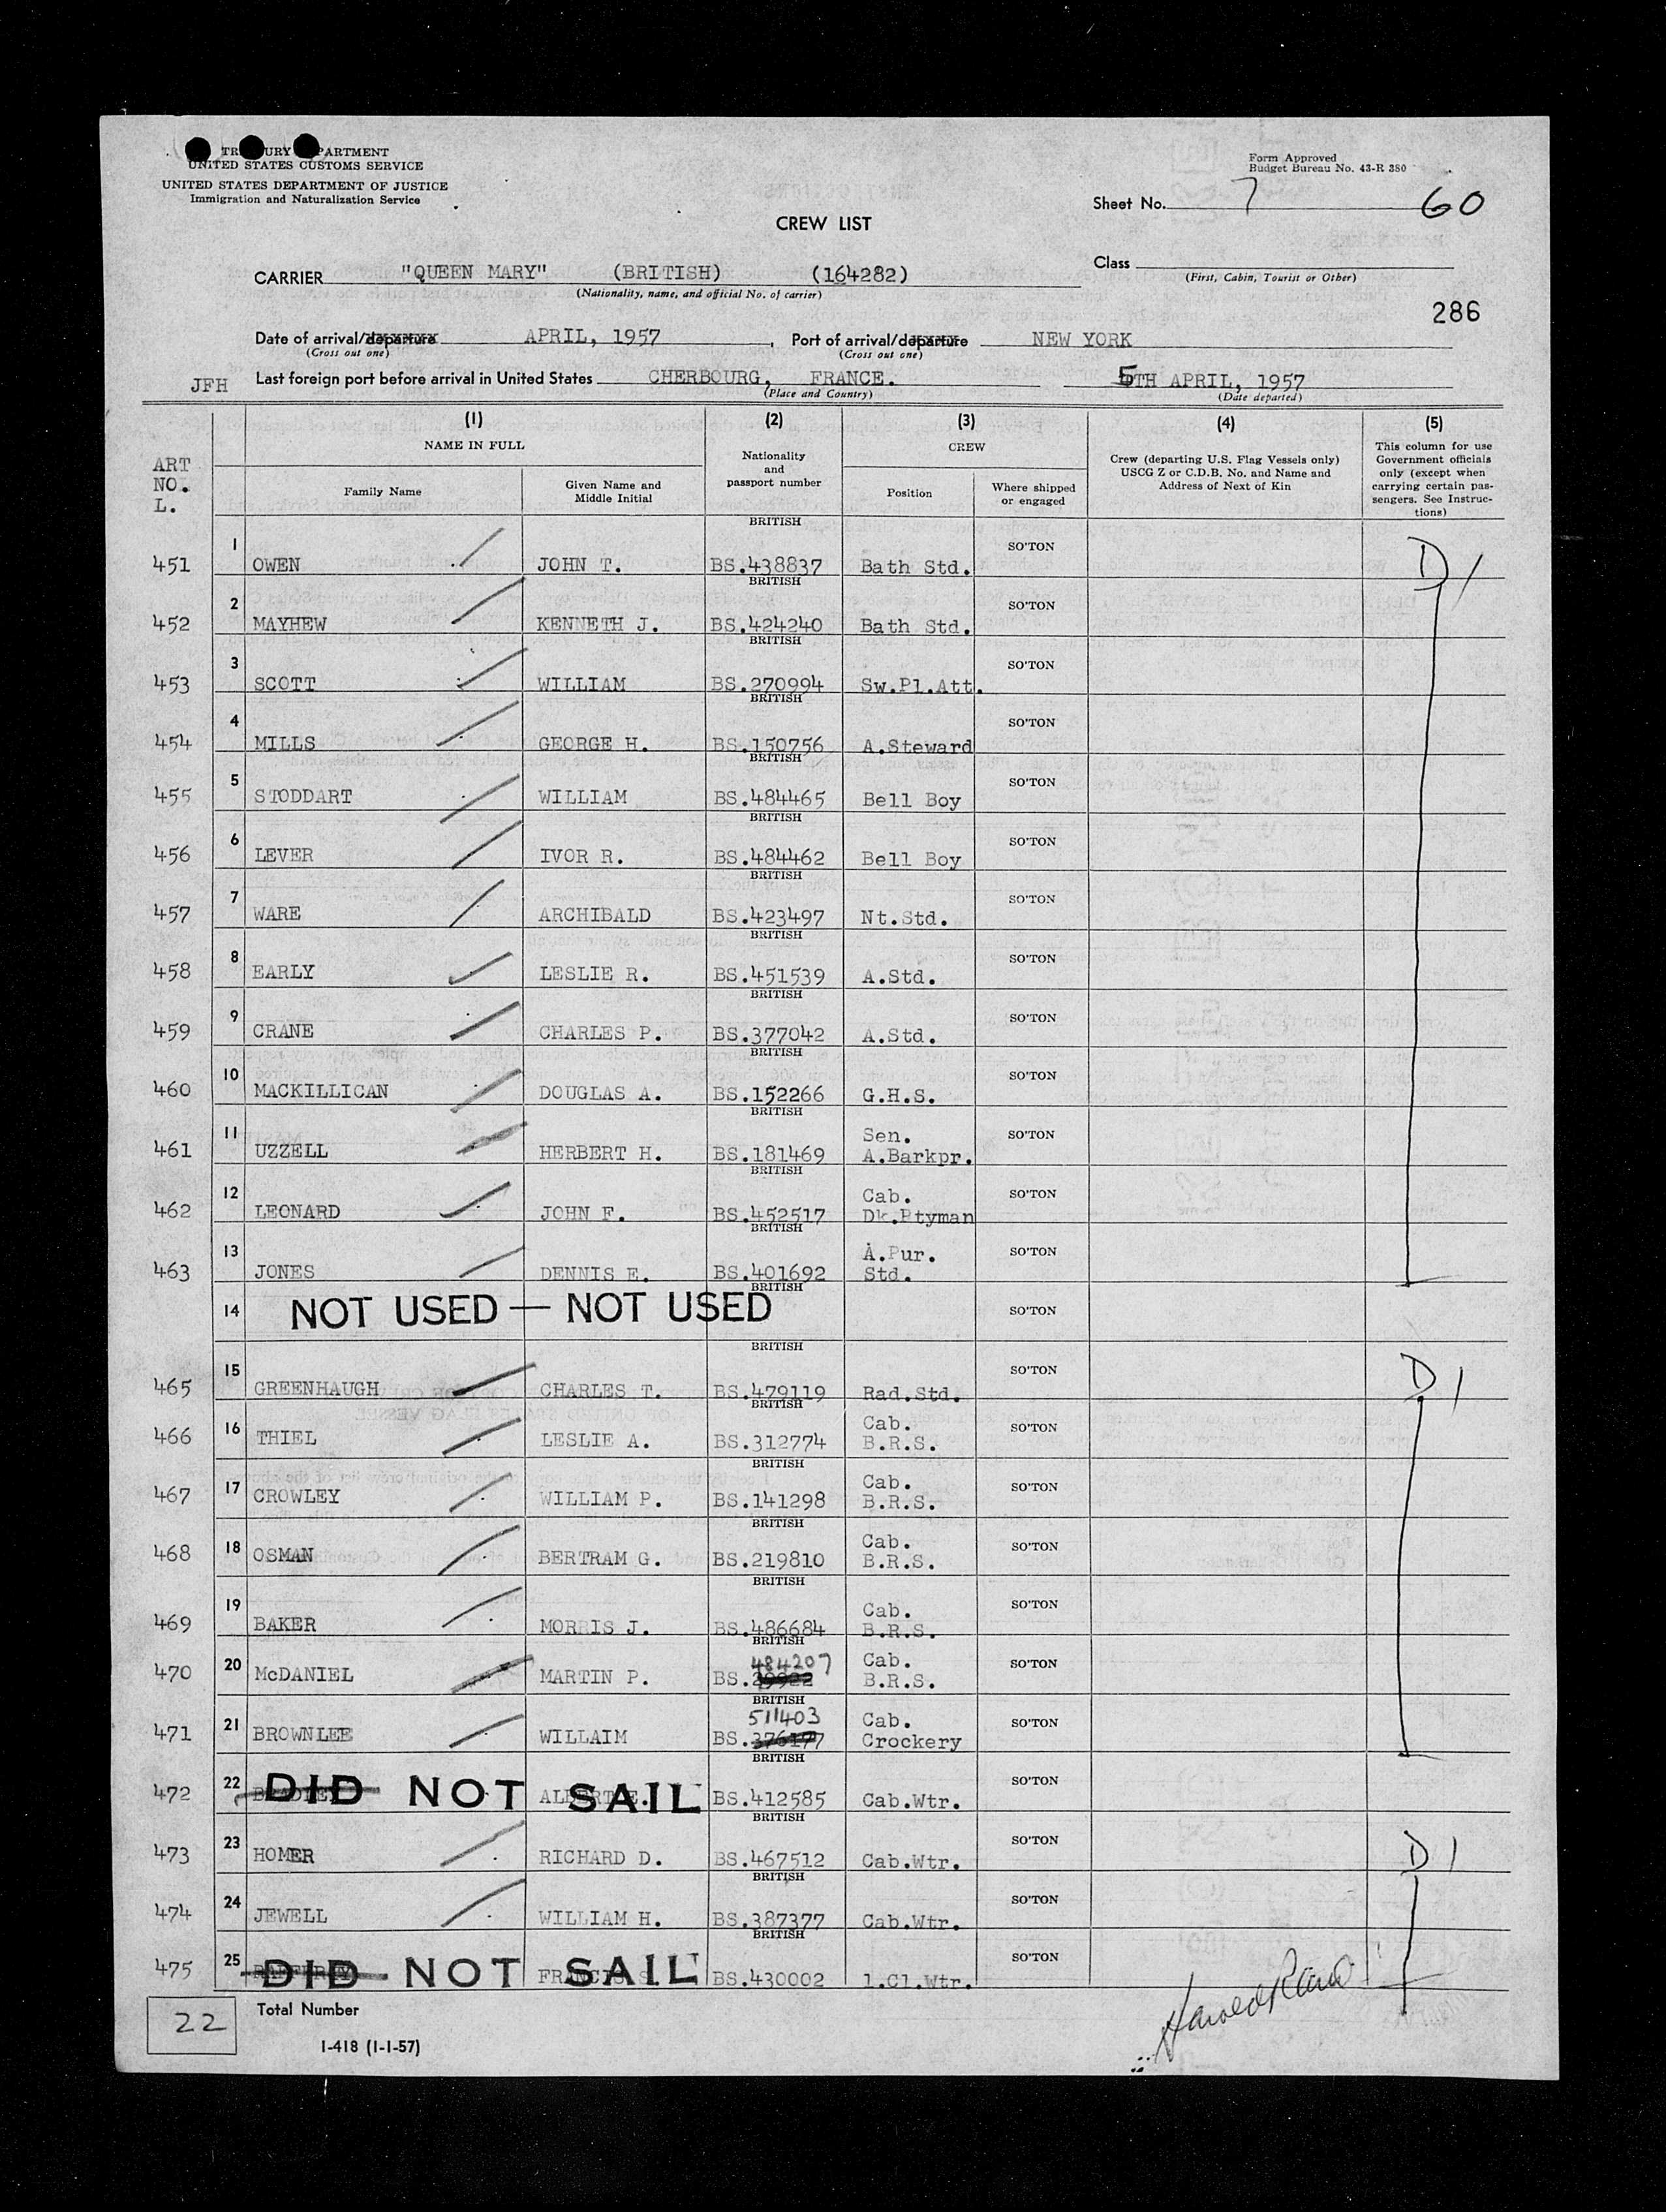 TR URY PARTMENT
UNITED STATES CUSTOMS SERVICE
UNITED STATES DEPARTMENT OF JUSTICE
Immigration and Naturalization Service
Form Approved
Budget Bureau No. 43-R 380
Sheet No. 7 60
CREW LIST
CARRIER "QUEEN MARY" (BRITISH) (164282)
(Nationality, name, and official No. of carrier)
Class
(First, Cabin, Tourist or Other)
286
Date of arrival/departure APRIL, 1957, Port of arrival/departure NEW YORK
(Cross out one) (Cross out one)
JFH Last foreign port before arrival in United States CHERBOURG, FRANCE. 5TH APRIL, 1957
(Place and Country) (Date departed)
ART NO. L.
(1) NAME IN FULL
Family Name
Given Name and Middle Initial
(2) Nationality and passport number
(3) CREW
Position
Where shipped or engaged
(4) Crew (departing U.S. Flag Vessels only) USCG Z or C.D.B. No. and Name and Address of Next of Kin
(5) This column for use Government officials only (except when carrying certain passengers. See Instructions)
451 1 OWEN JOHN T. BRITISH BS.438837 Bath Std. SO'TON D /
452 2 MAYHEW KENNETH J. BRITISH BS.424240 Bath Std. SO'TON
453 3 SCOTT WILLIAM BRITISH BS.270994 Sw.Pl.Att. SO'TON
454 4 MILLS GEORGE H. BRITISH BS.150756 A.Steward SO'TON
455 5 STODDART WILLIAM BRITISH BS.484465 Bell Boy SO'TON
456 6 LEVER IVOR R. BRITISH BS.484462 Bell Boy SO'TON
457 7 WARE ARCHIBALD BRITISH BS.423497 Nt.Std. SO'TON
458 8 EARLY LESLIE R. BRITISH BS.451539 A.Std. SO'TON
459 9 CRANE CHARLES P. BRITISH BS.377042 A.Std. SO'TON
460 10 MACKILLICAN DOUGLAS A. BRITISH BS.152266 G.H.S. SO'TON
461 11 UZZELL HERBERT H. BRITISH BS.181469 Sen. A.Barkpr. SO'TON
462 12 LEONARD JOHN F. BRITISH BS.452517 Cab. Dk.Ptyman SO'TON
463 13 JONES DENNIS E. BRITISH BS.401692 A.Pur. Std. SO'TON
14 NOT USED — NOT USED BRITISH SO'TON
465 15 GREENHAUGH CHARLES T. BRITISH BS.479119 Rad.Std. SO'TON D /
466 16 THIEL LESLIE A. BRITISH BS.312774 Cab. B.R.S. SO'TON
467 17 CROWLEY WILLIAM P. BRITISH BS.141298 Cab. B.R.S. SO'TON
468 18 OSMAN BERTRAM G. BRITISH BS.219810 Cab. B.R.S. SO'TON
469 19 BAKER MORRIS J. BRITISH BS.486684 Cab. B.R.S. SO'TON
470 20 McDANIEL MARTIN P. BRITISH 484207 BS. Cab. B.R.S. SO'TON
471 21 BROWNLEE WILLAIM BRITISH 511403 BS.376177 Cab. Crockery SO'TON
472 22 DID NOT SAIL ALBERT E. BRITISH BS.412585 Cab.Wtr. SO'TON
473 23 HOMER RICHARD D. BRITISH BS.467512 Cab.Wtr. SO'TON D /
474 24 JEWELL WILLIAM H. BRITISH BS.387377 Cab.Wtr. SO'TON
475 25 DID NOT SAIL FRANCIS S. BRITISH BS.430002 1.Cl.Wtr. SO'TON
22 Total Number
I-418 (1-1-57)